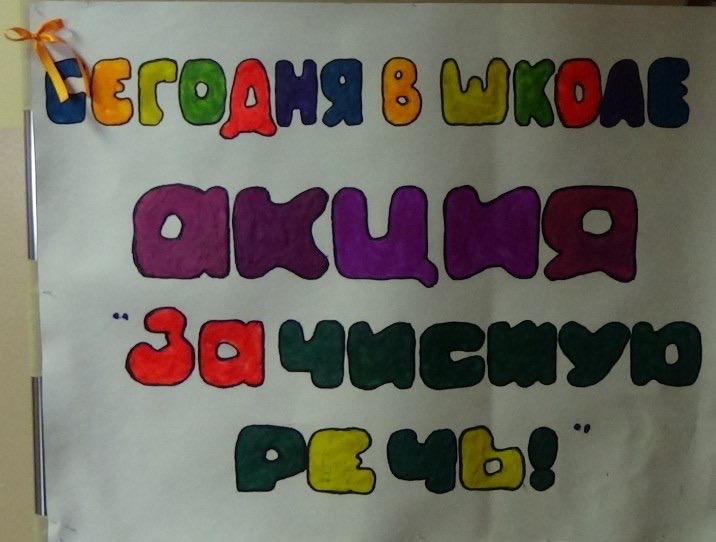 СЕГОДНЯ В ШКОЛЕ
АКЦИЯ
"ЗА ЧИСТУЮ
РЕЧЬ!"